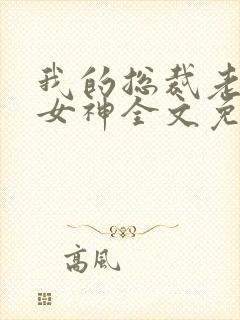 我的总裁老
女神全文免
高风